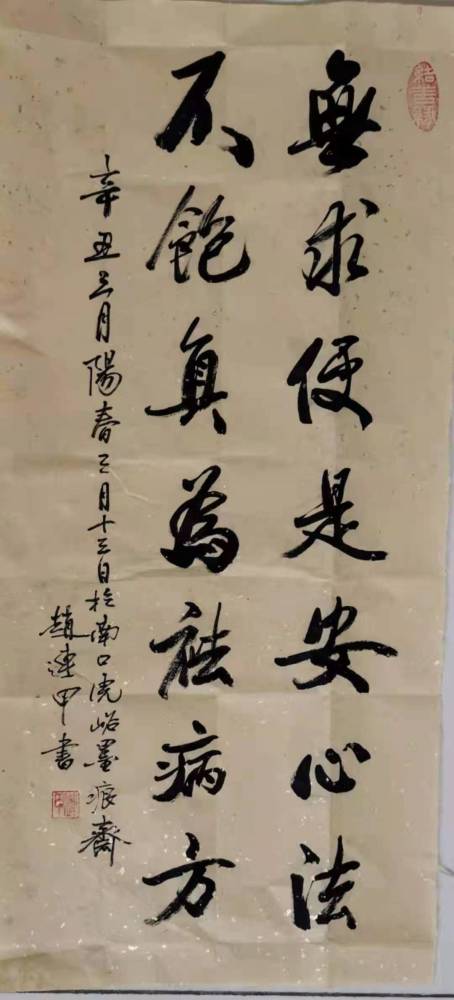 無求便是安心法
不飽真為祛病方
辛丑三月陽春三月十三日於南口虎峪墨痕齋
趙連甲書